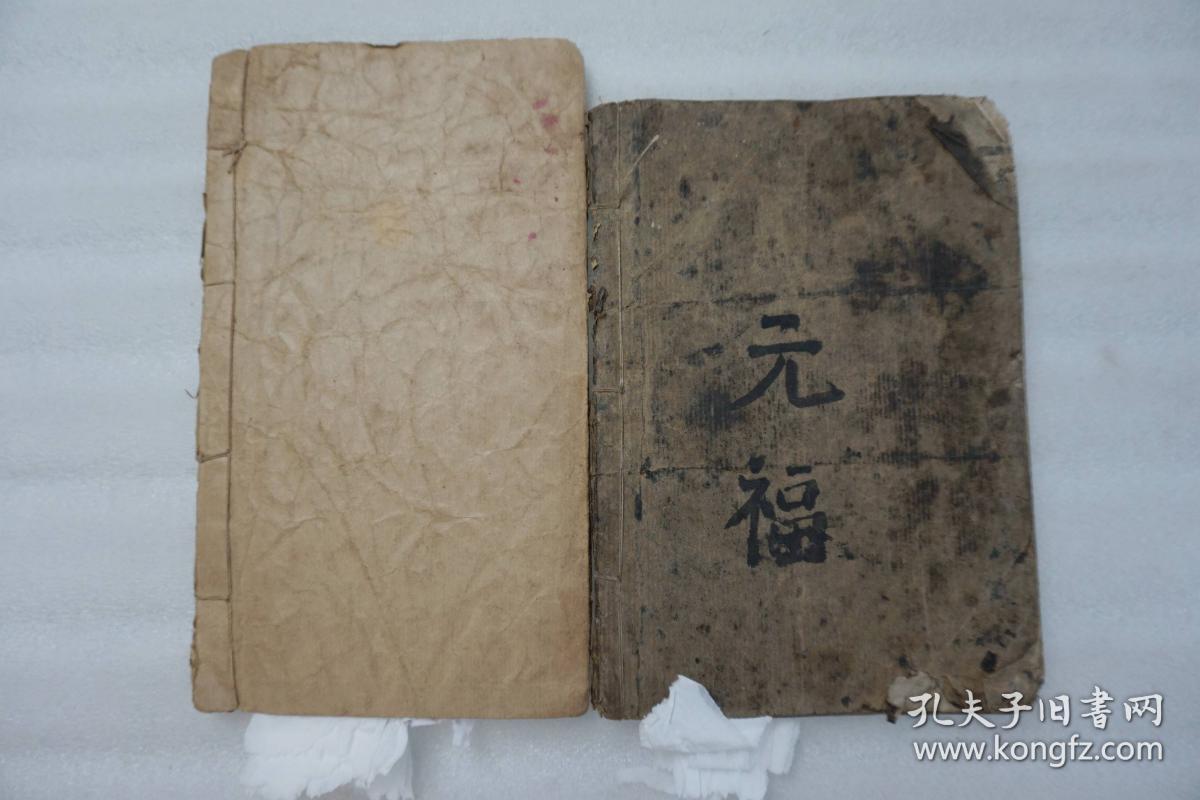 元福
孔夫子旧書网
www.kongfz.com